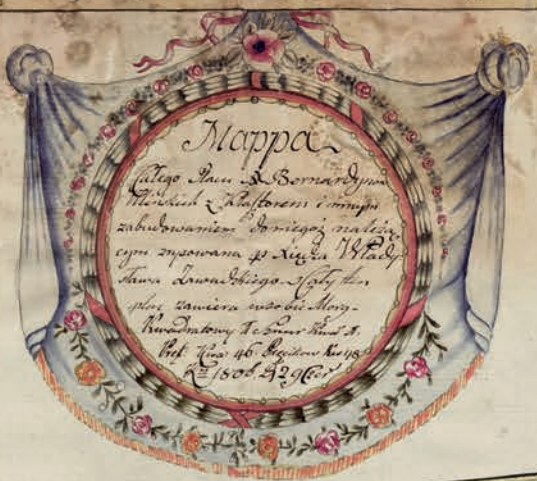 Mappa
Całego Placu Bernardynow
Minskich z Klasztorem i innym
zabudowaniem do niegoż należą
cym zrysowana p Xiędza Włady
sława Zawadzkiego. Cały ten
plac zawiera w sobie Morg
Kwadratowy
Pręt. Kwa: 46 Kwa 48
1806. 29